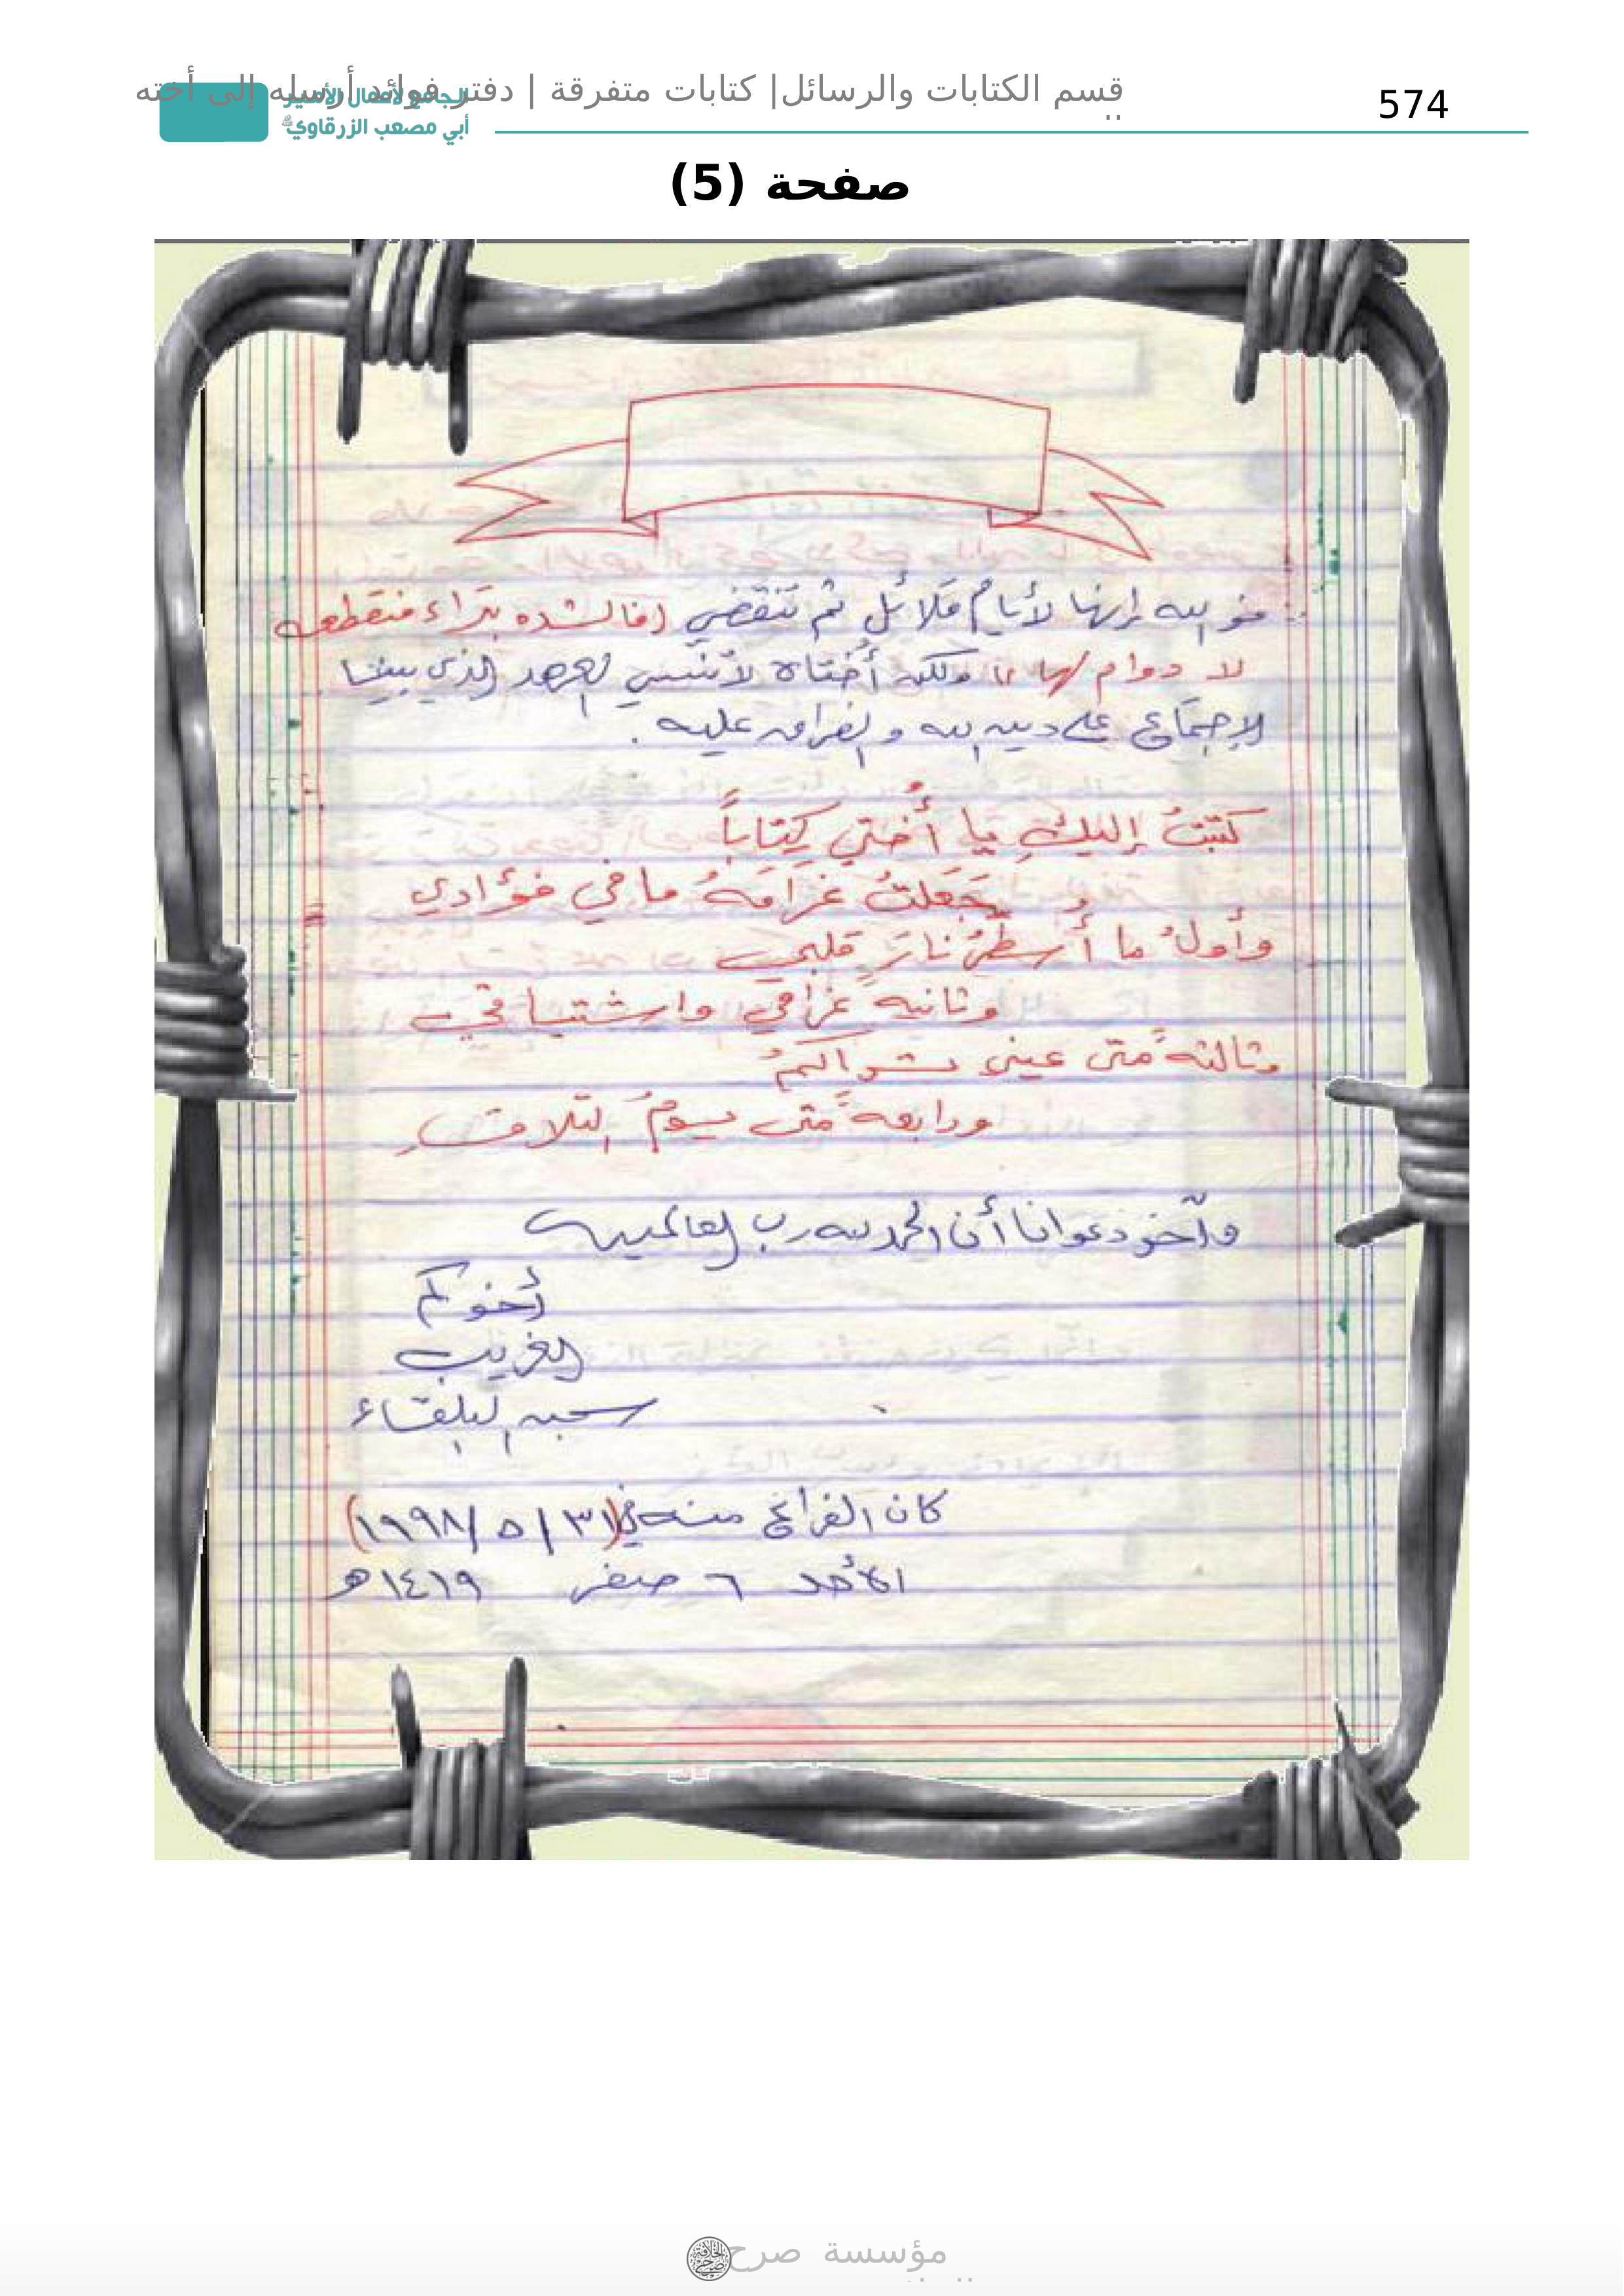 574
قسم الكتابات والرسائل| كتابات متفرقة | دفتر فوائد أرسله إلى أخته
الجامع لأعمال الأمير
أبي مصعب الزرقاوي
صفحة (5)
فوالله إنها لأيامٌ قلائل ثم تنقضي (فالشده بتراء منقطعه
لا دوام لها )) ولكن أُختاه لا تنسي العهد الذي بيننا
الإجتماع على دين الله والفراق عليه .
كتبتُ إليكِ يا أُختي كِتاباً
جَعَلتُ غرامَهُ ما في فؤادي
وأولُ ما أُسطرُ نارَ قلبي
وثانيه غرامي واشتياقي
وثالثه متى عيني تراكمُ
ورابعه متى يومُ التلاقِ
وآخر دعوانا أن الحمد لله رب العالمين
أخوكم
الغريب
سجن البلقاء
كان الفراغ منه في (٣١ / ٥ / ١٩٩٨)
الأحد ٦ صفر ١٤١٩هـ
مؤسسة صرح